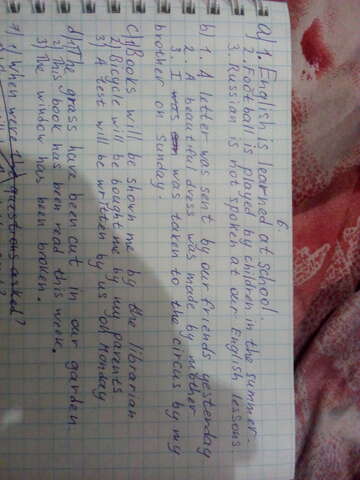 6
a) 1. English is learned at school.
2. Football is played by children in the summer.
3. Russian is not spoken at our English lessons
b) 1. A letter was sent by our friends yesterday
2. A beautiful dress was made by mother
3. I was taken to the circus by my
brother on Sunday.
c) 1) Books will be shown me by the librarian
2) Bicycle will be bought me by my parents
3) A test will be written by us on Monday
d) 1) The grass have been cut in our garden.
2) This book has been read this week.
3) The window has been broken.
1) When were questions asked?